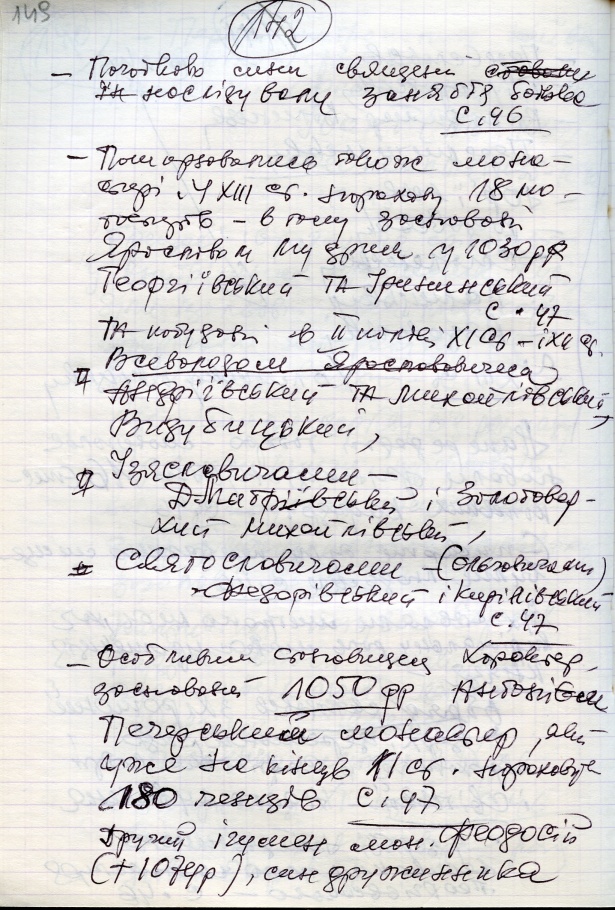 149
142
– Початково сини священ
та наслідували заняття батька
С. 46
– також мона-
стирі. У XIII ст. нарахову 18 мо-
– в тому засновані
Ярославом Мудрим у 1030 рр
Георгіївський та Ірининський
С. 47
та побудові в II половині XI ст – і XII ст.
Всеволодом Ярославовичем
Андріївський та Михайлівський
Видубицький,
Ізяславичами –
Дмитріївський і Золотовер-
хий Михайлівський,
Святославичами – (Ольговичами)
Федорівський і Кирилівський
С. 47
– Особливим становищем характер.
заснований 1050 рр Антонієм
Печерський монастир, який
уже на кінець XI ст. нараховував
180 ченців С. 47
Другий ігумен мон. Феодосій
(+ 1074 р), син дружинника